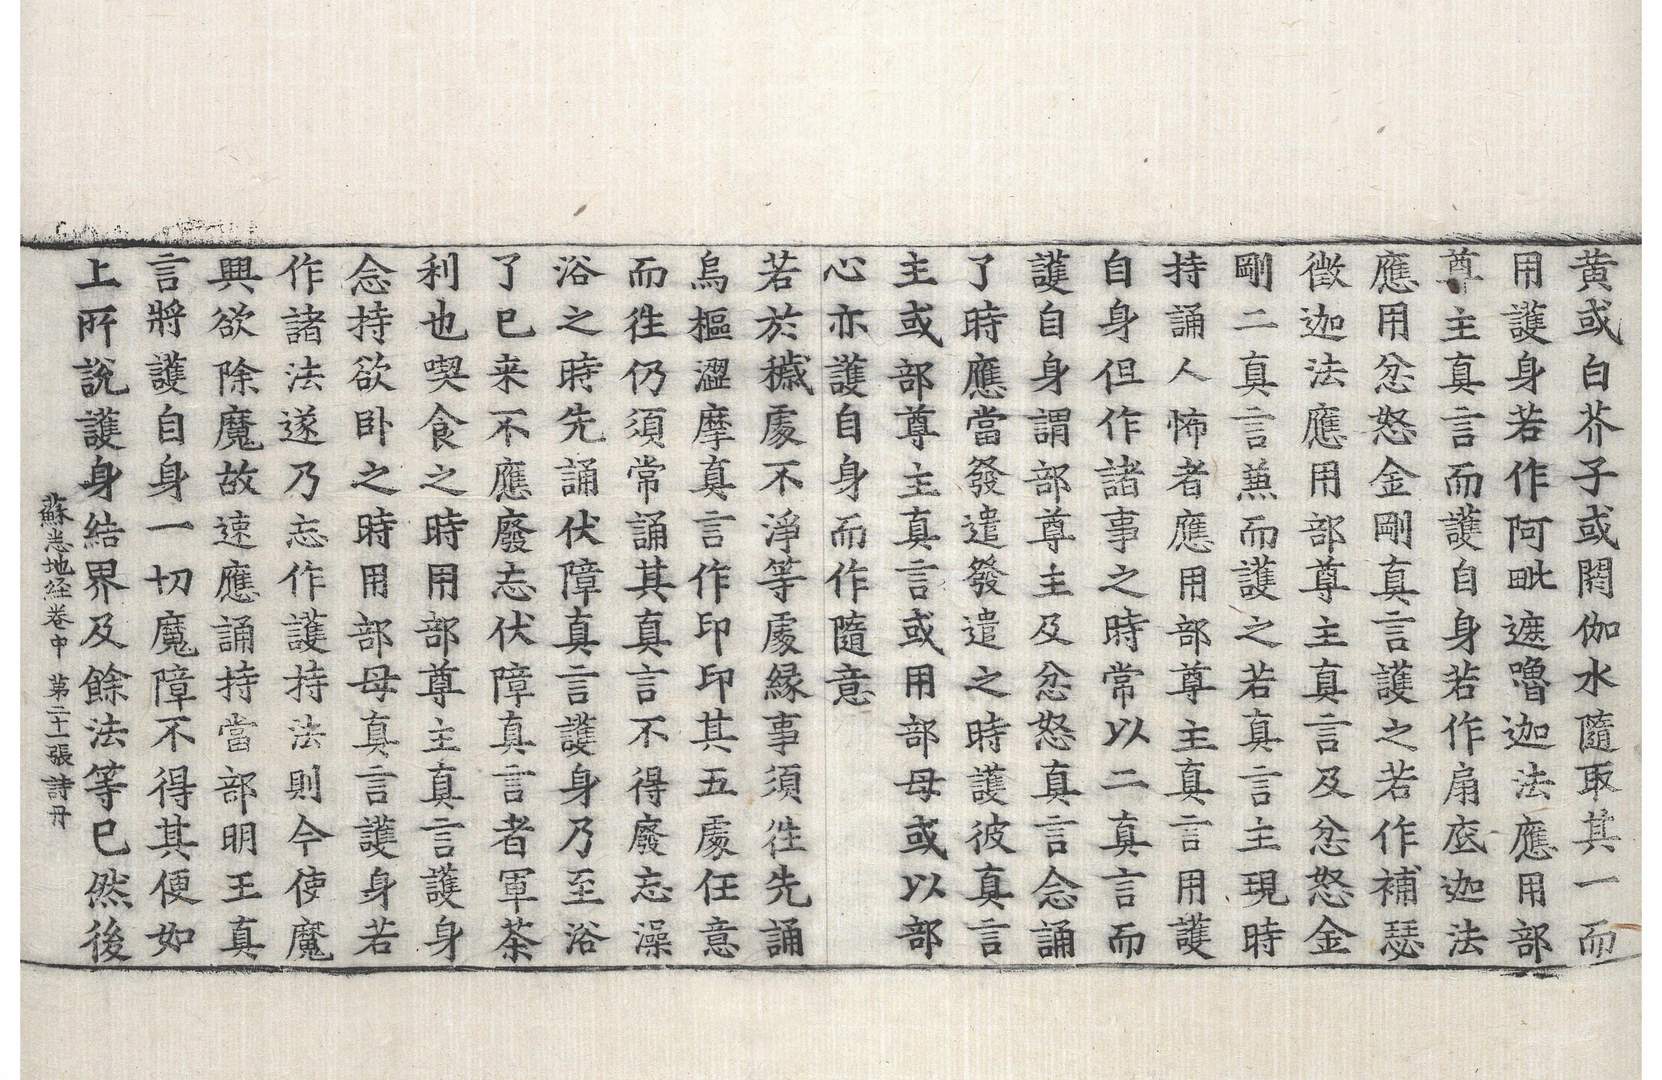 黄或白芥子或閼伽水隨取其一而
用護身若作阿毗遮嚕迦法應用部
尊主真言而護自身若作扇底迦法
應用忿怒金剛真言護之若作補瑟
徵迦法應用部尊主真言及忿怒金
剛二真言兼而護之若真言主現時
持誦人怖者應用部尊主真言用護
自身但作諸事之時常以二真言而
護自身謂部尊主及忿怒真言念誦
了時應當發遣發遣之時護彼真言
主或部尊主真言或用部母或以部
心亦護自身而作隨意
若於穢處不淨等處緣事須往先誦
烏樞澀摩真言作印印其五處任意
而往仍須常誦其真言不得廢忘澡
浴之時先誦伏障真言護身乃至浴
了已来不應廢忘伏障真言者軍荼
利也喫食之時用部尊主真言護身
念持欲卧之時用部母真言護身若
作諸法遂乃忘作護持法則令使魔
興欲除魔故速應誦持當部明王真
言將護自身一切魔障不得其便如
上所説護身結界及餘法等已然後
蘇悉地経卷中 第二十一張 詩丹